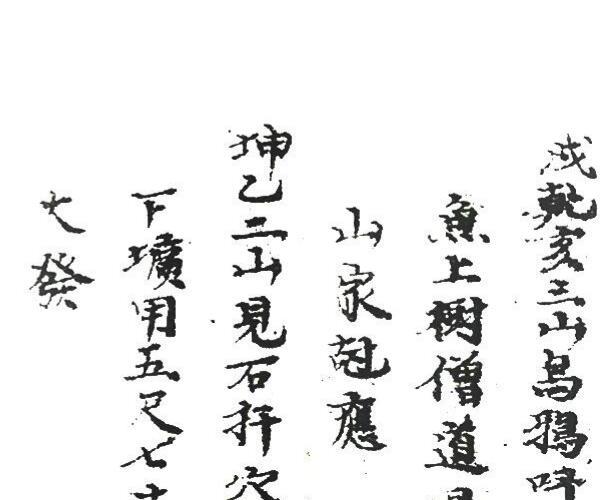 戌乾亥三山烏鴉
魚上樹僧道
山家尅應
坤乙二山見石拝穴
下壙用五尺七
大發